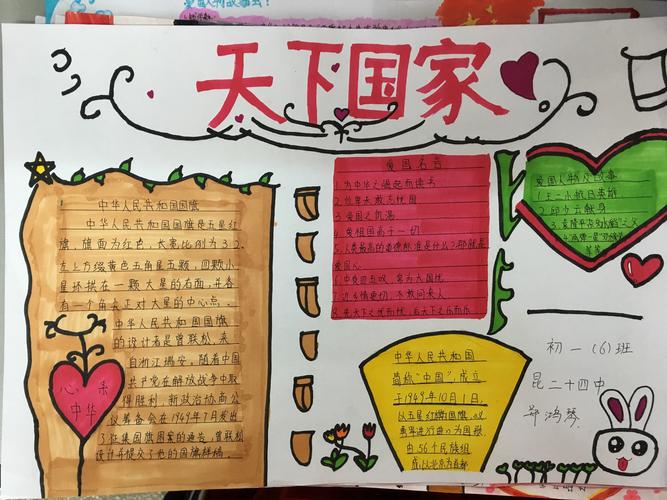 天下国家
中华人民共和国国旗
中华人民共和国国旗是五星红
旗，旗面为红色，长宽比例为3:2。
左上方缀黄色五角星五颗，四颗小
星环拱在一颗大星的右面，并各
有一个角尖正对大星的中心点。
中华人民共和国国旗
的设计者是曾联松，来
自浙江瑞安。随着中国
共产党在解放战争中取
得胜利，新政治协商会
议筹备会在1949年7月发出
了征集国旗图案的通告，曾联松
设计并提交了他的国旗样稿。
心系
中华
爱国名言
1.为中华之崛起而读书
2.位卑未敢忘忧国
4.爱祖国高于一切
7.近乡情更切，不敢问来人
8.先天下之忧而忧，后天下之乐而乐
爱国人物及故事
1.王二小抗日英雄
中华人民共和国
简称"中国"，成立
于1949年10月1日，
以五星红旗为国旗，以
义勇军进行曲为国歌，
由56个民族组
成，以北京为首都
初一(6)班
昆二十四中